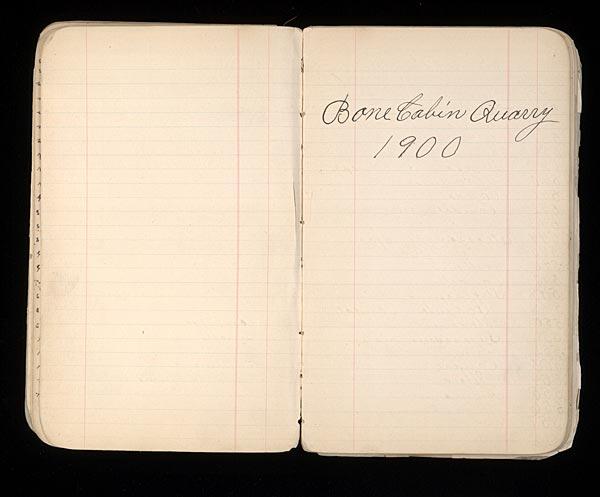 Bone Cabin Quarry
1900